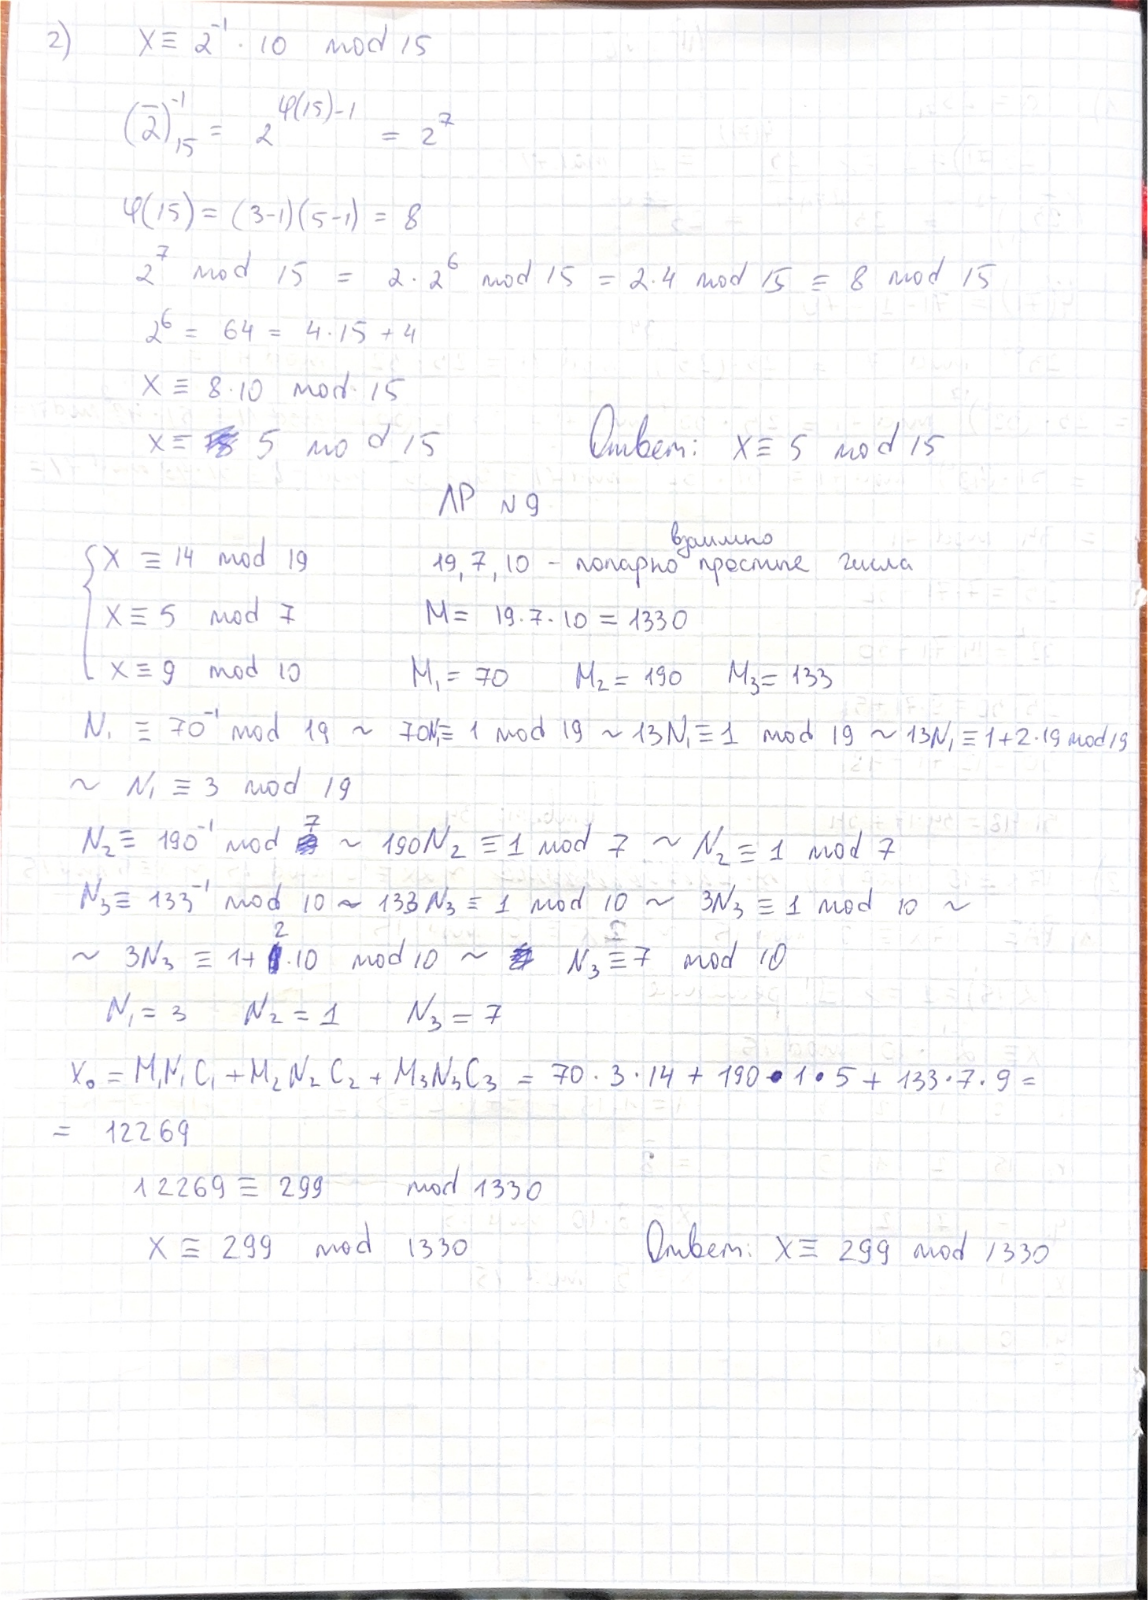 2) X ≡ 2⁻¹ · 10 mod 15
(2̄)⁻¹₁₅ = 2^(φ(15)-1) = 2⁷
φ(15) = (3-1)(5-1) = 8
2⁷ mod 15 = 2·2⁶ mod 15 = 2·4 mod 15 ≡ 8 mod 15
2⁶ = 64 = 4·15 + 4
X ≡ 8·10 mod 15
X ≡ 5 mod 15 Ответ: X ≡ 5 mod 15
ЛР N9
{ X ≡ 14 mod 19 19, 7, 10 - попарно взаимно простые числа
X ≡ 5 mod 7 M = 19·7·10 = 1330
X ≡ 9 mod 10 M₁ = 70 M₂ = 190 M₃ = 133
N₁ ≡ 70⁻¹ mod 19 ~ 70N₁ ≡ 1 mod 19 ~ 13N₁ ≡ 1 mod 19 ~ 13N₁ ≡ 1+2·19 mod 19
~ N₁ ≡ 3 mod 19
N₂ ≡ 190⁻¹ mod 7 ~ 190N₂ ≡ 1 mod 7 ~ N₂ ≡ 1 mod 7
N₃ ≡ 133⁻¹ mod 10 ~ 133N₃ ≡ 1 mod 10 ~ 3N₃ ≡ 1 mod 10 ~
~ 3N₃ ≡ 1+2·10 mod 10 ~ N₃ ≡ 7 mod 10
N₁ = 3 N₂ = 1 N₃ = 7
X₀ = M₁N₁C₁ + M₂N₂C₂ + M₃N₃C₃ = 70·3·14 + 190·1·5 + 133·7·9 =
= 12269
12269 ≡ 299 mod 1330
X ≡ 299 mod 1330 Ответ: X ≡ 299 mod 1330